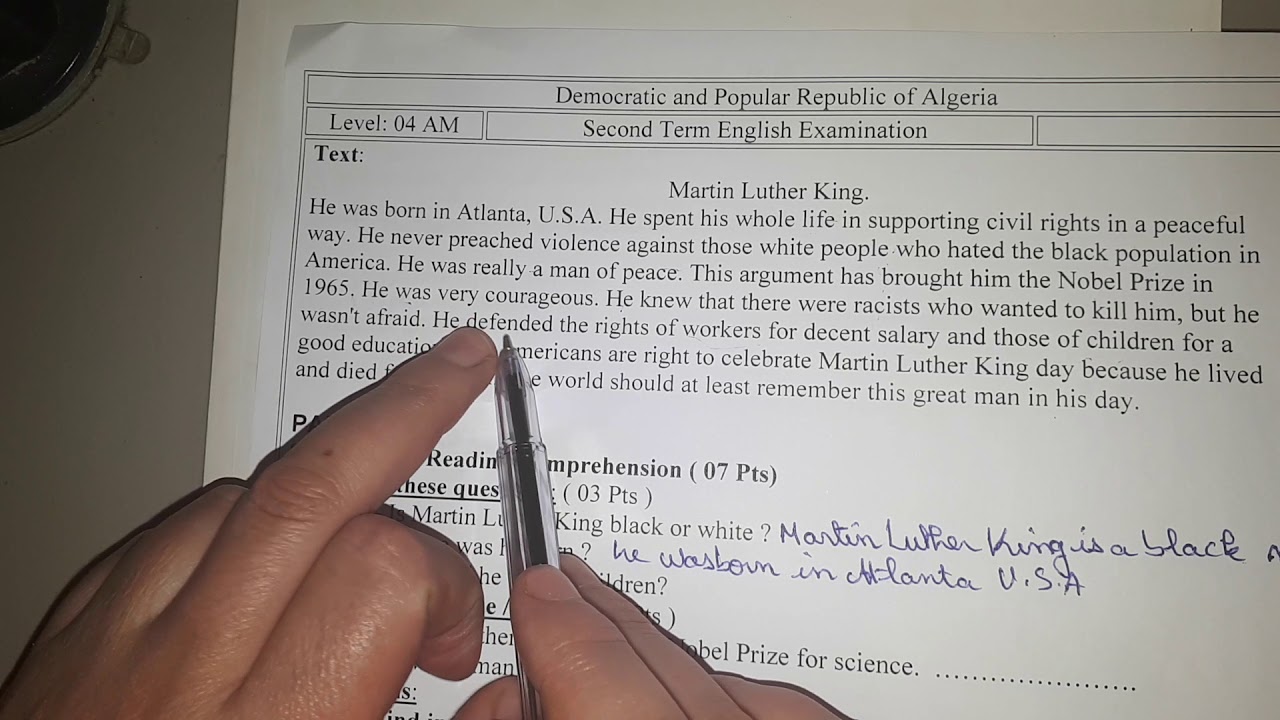 Democratic and Popular Republic of Algeria
Level: 04 AM
Second Term English Examination
Text:
Martin Luther King.
He was born in Atlanta, U.S.A. He spent his whole life in supporting civil rights in a peaceful
way. He never preached violence against those white people who hated the black population in
America. He was really a man of peace. This argument has brought him the Nobel Prize in
1965. He was very courageous. He knew that there were racists who wanted to kill him, but he
wasn't afraid. He defended the rights of workers for decent salary and those of children for a
good are right to celebrate Martin Luther King day because he lived
and died world should at least remember this great man in his day.
( 07 Pts)
( 03 Pts )
Martin King black or white ? Martin Luther King is a black
was ? he was born in Atlanta U.S.A
he
Prize for science. ........................